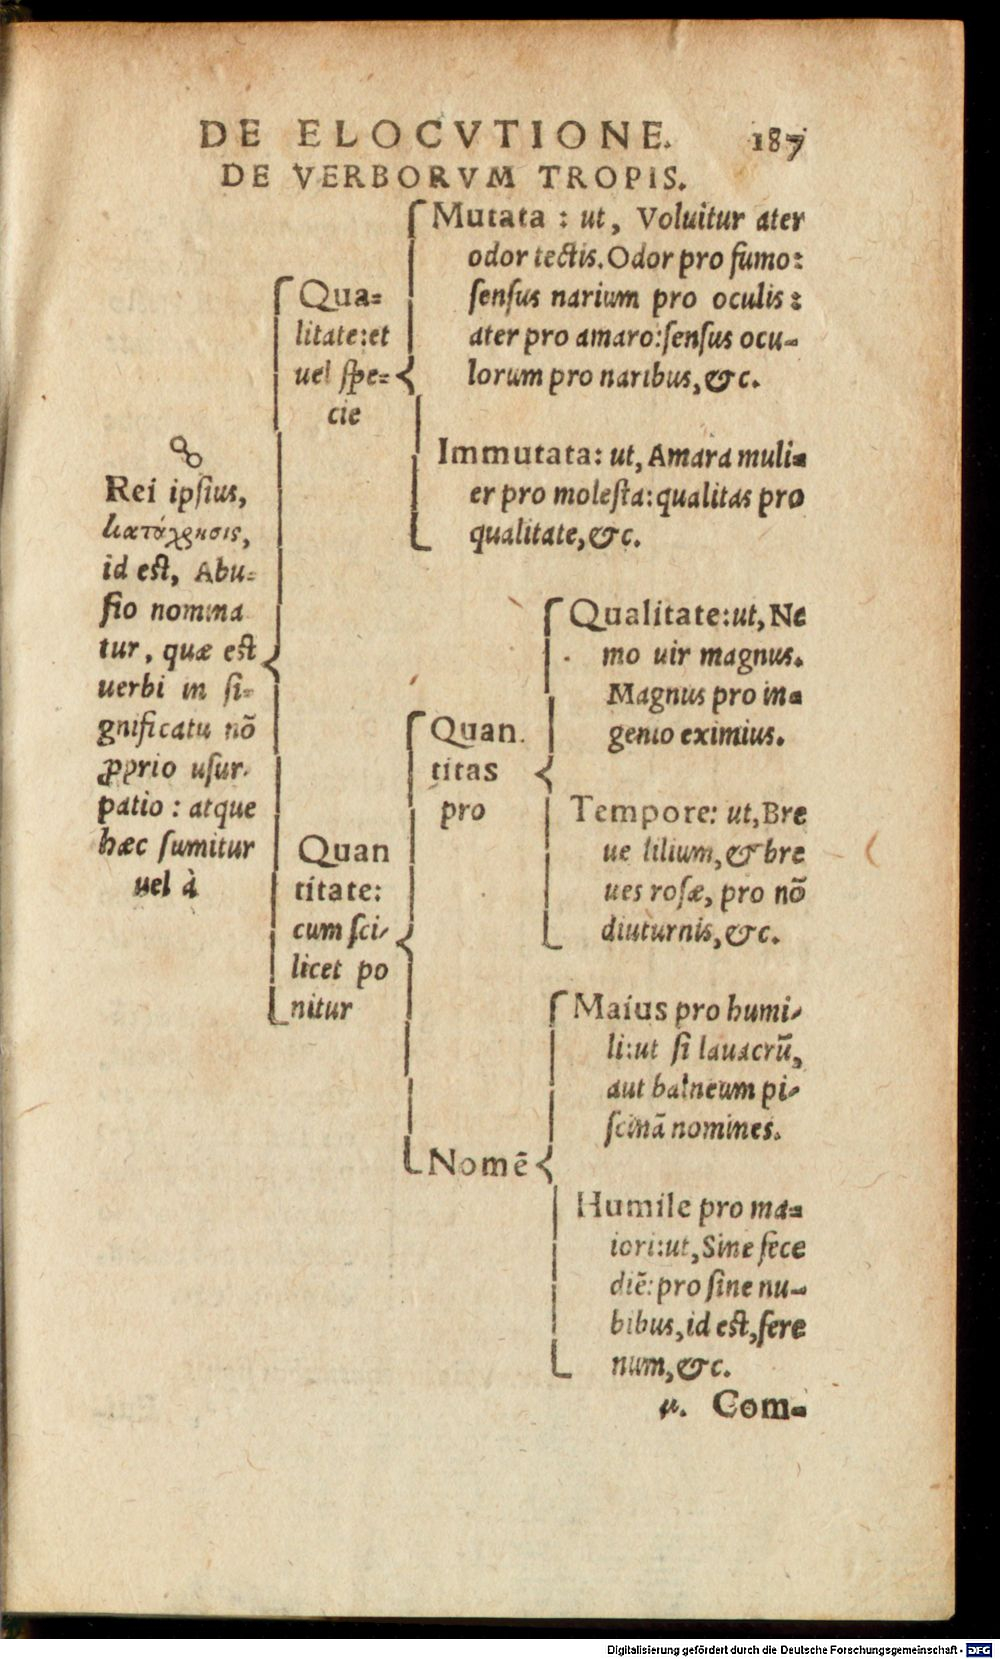 DE ELOCVTIONE. 187
DE VERBORVM TROPIS.
Rei ipſius,
κατάχρησις,
id eſt, Abu-
ſio nomina
tur, quæ eſt
uerbi in ſi-
gnificatu nõ
ꝓprio uſur-
patio : atque
hæc ſumitur
uel à
Qua-
litate: et
uel ſpe-
cie
Mutata : ut, Voluitur ater
odor tectis. Odor pro fumo:
ſenſus narium pro oculis :
ater pro amaro: ſenſus ocu-
lorum pro naribus, &c.
Immutata: ut, Amara muli-
er pro moleſta: qualitas pro
qualitate, &c.
Quan
titate:
cum ſci-
licet po
nitur
Quan.
titas
pro
Qualitate: ut, Ne
mo uir magnus.
Magnus pro in-
genio eximius.
Tempore: ut, Bre
ue lilium, & bre
ues roſæ, pro nõ
diuturnis, &c.
Nomẽ
Maius pro humi-
li: ut ſi lauacrũ,
aut balneum pi-
ſcinã nomines.
Humile pro ma-
iori: ut, Sine fece
diẽ: pro ſine nu-
bibus, id eſt, ſere
num, &c.
Com-
Digitalisierung gefördert durch die Deutsche Forschungsgemeinschaft - DFG